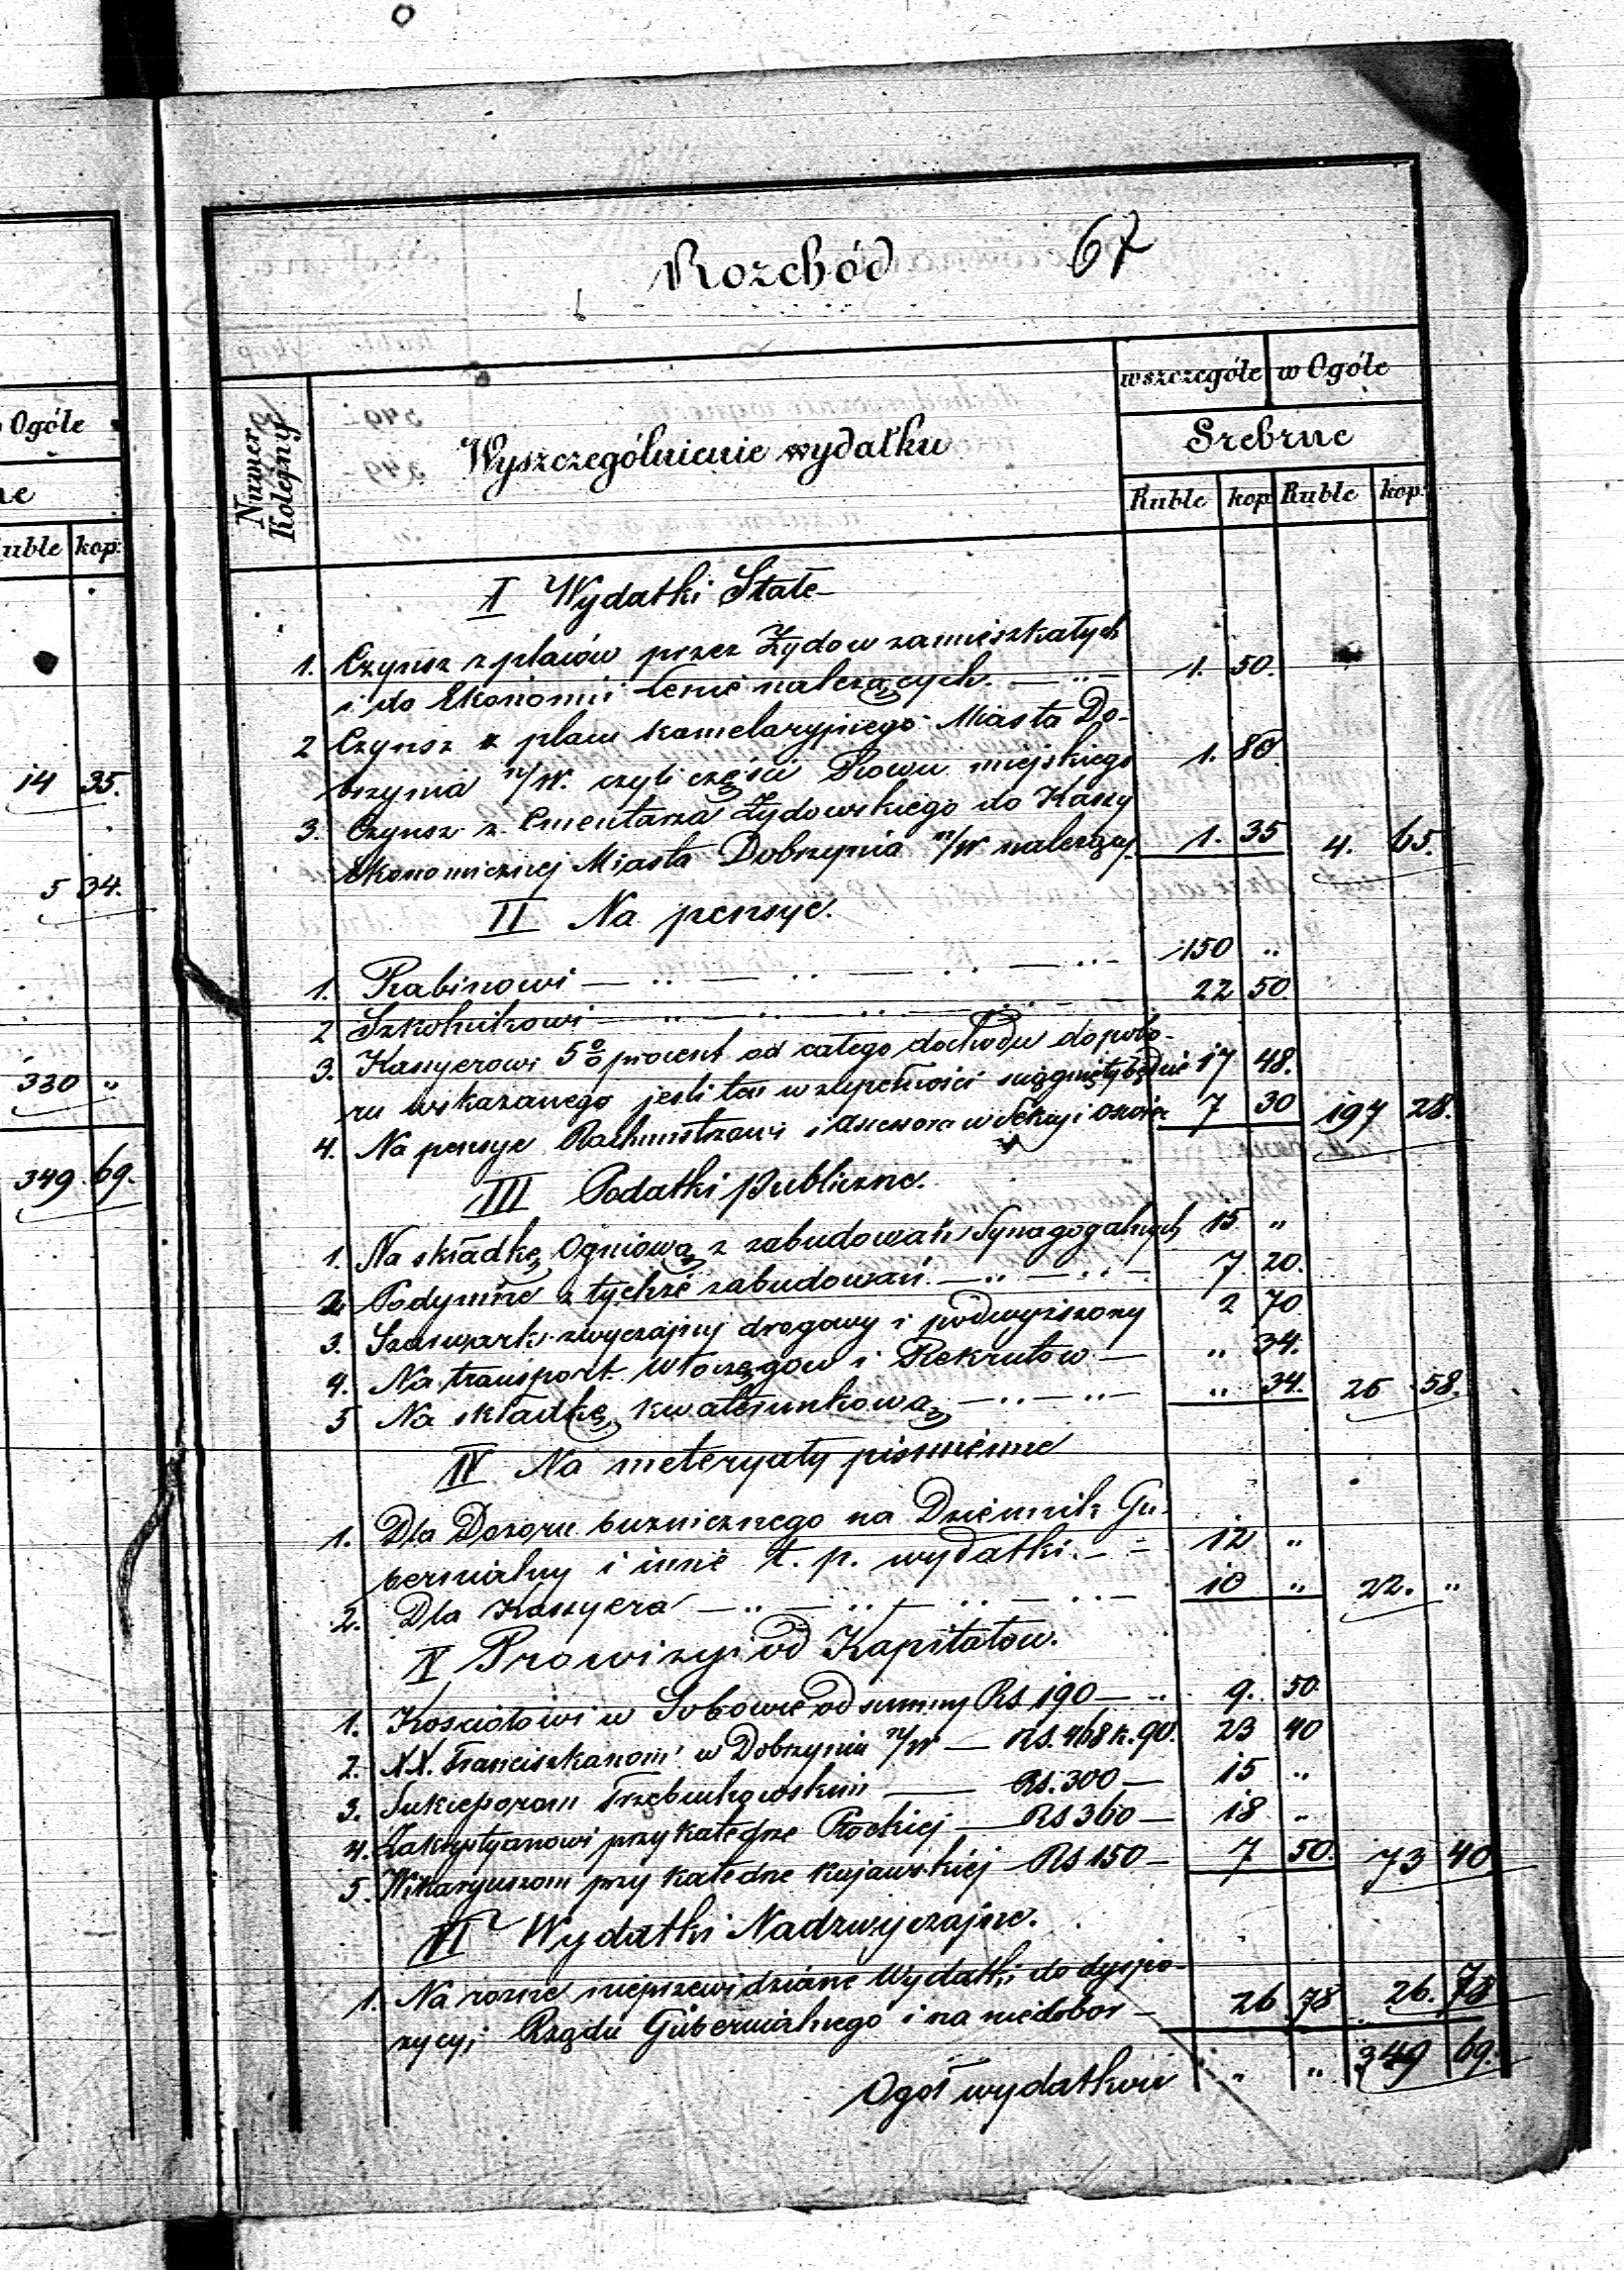 Ogóle
ne
Ruble kop:
14 35.
5 34.
330 "
349 69.
Rozchód 67
Numer Kolejny
Wyszczególnienie wydatku
wszczególe w Ogóle
Srebrne
Ruble kop Ruble kop:
I Wydatki Stałe
1. Czynsz z placów przez Żydow zamieszkałych
i do Ekonomii należących. 1. 50.
2 Czynsz z placu kamelaryjnego Miasta Do-
brzynia n/W. czyli części Rowu miejskiego 1. 80.
3. Czynsz z Cmentarza Żydowskiego do Kassy
Ekonomicznej Miasta Dobrzynia n/W należący 1. 35 4. 65.
II Na pensye.
1. Rabinowi 150 "
2 Szkolnikowi 22 50.
3. Kassyerowi 5% procent od całego dochodu do pobo-
ru wskazanego jesli ten w zupełności sciągnięty będzie 17 48.
4. Na pensye Rachmistrzowi i Assessora w Sekcyi 7 30 197 28.
III Podatki publiczne.
1. Na składkę Ogniową z zabudowań Synagogalnych 15 "
2. Podymne z tychże zabudowań 7 20.
3. Szarwark zwyczajny drogowy i podwyższony 2 70
4. Na transport włoczęgow i Rekrutow " 34.
5 Na składkę kwaterunkową " 34. 25 58.
IV Na meteryały pismienne
1. Dla Dozoru buzniczego na Dziennik Gu-
bernialny i inne t. p. wydatki 12 "
2. Dla Kassyera 10 " 22. "
V Prowizyi od Kapitałow.
1. Kosciołowi w Sobowie od summy RS 190 9. 50
2. XX. Franciszkanom w Dobrzyniu n/W RS. 468 k. 90. 23 40
3. Sukcessorom RS. 300 15 "
4. Zakrystyanowi przy katedrze Płockiej RS 360 18 "
5. Wikaryuszom przy katedrze kujawskiej RS 150 7 50. 73 40
VI Wydatki Nadzwyczajne.
1. Na rozne nieprzewidziane Wydatki do dyspo-
zycyi Rządu Gubernialnego i na niedobor 26 78 26. 78
Ogół wydatkow " " 349 69.